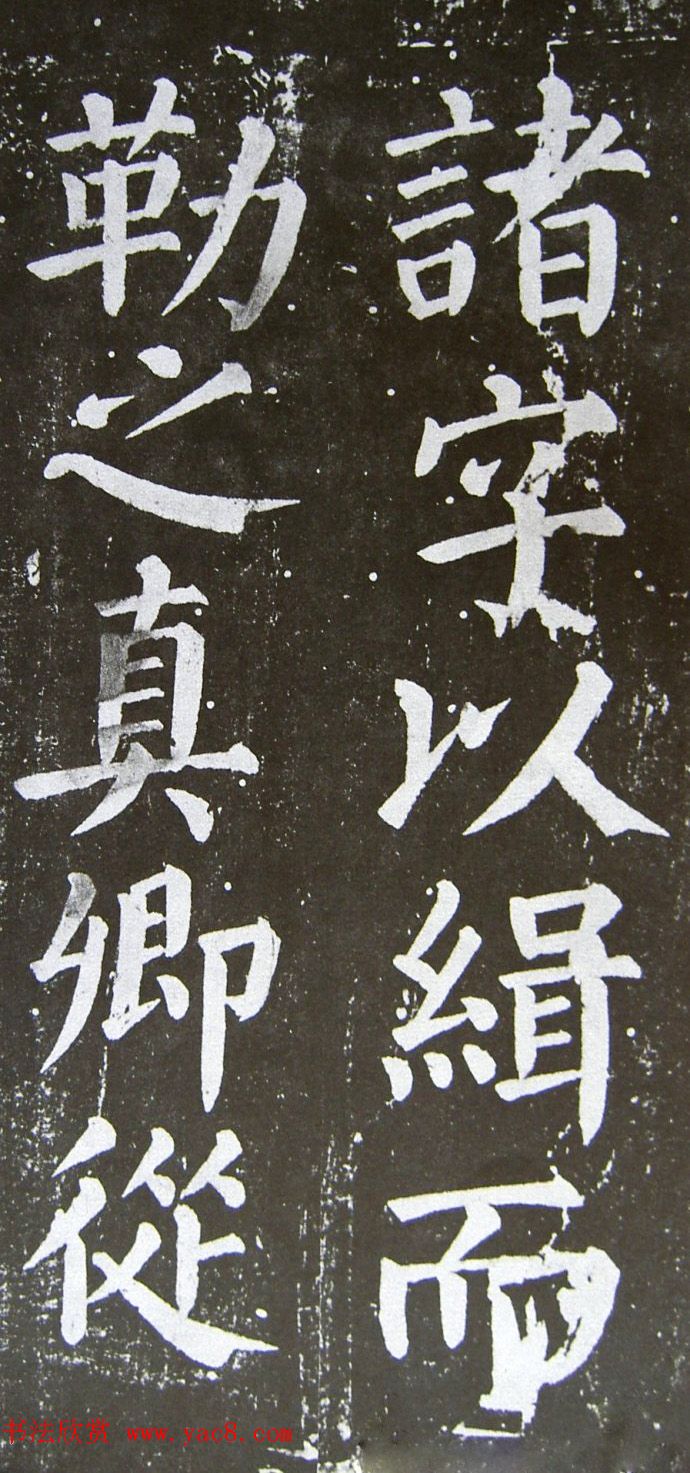 諸以緝而
勒之真卿從
书法欣赏 www.yac8.com